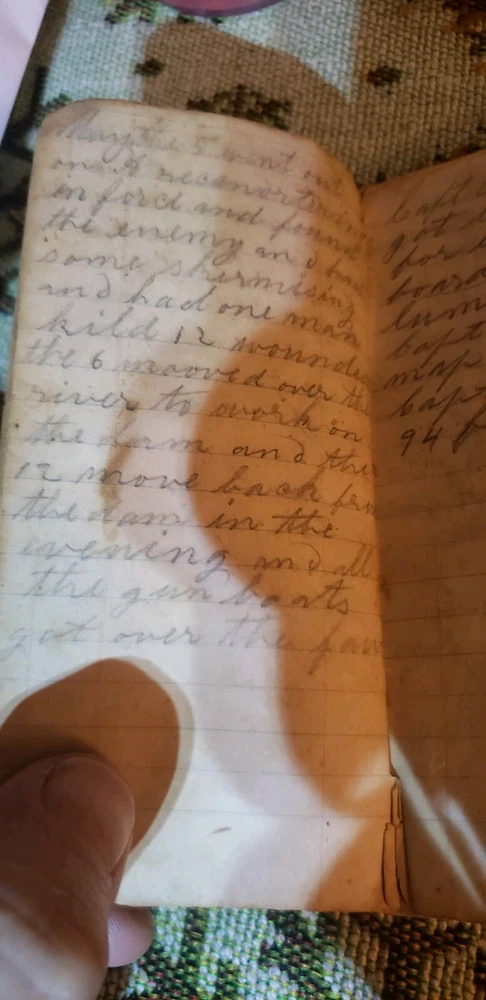 May the 5 went out
on a reconortering
in forcd and found
the enemy and had
some skirmising
and had one man
kild 12 wounded
the 6 mooved over the
river to work on
the dam and the
12 move back from
the dam in the
evening and all
the gun boats
got over the
Capt
got
for
board
lum
Capt
map
Capt
94